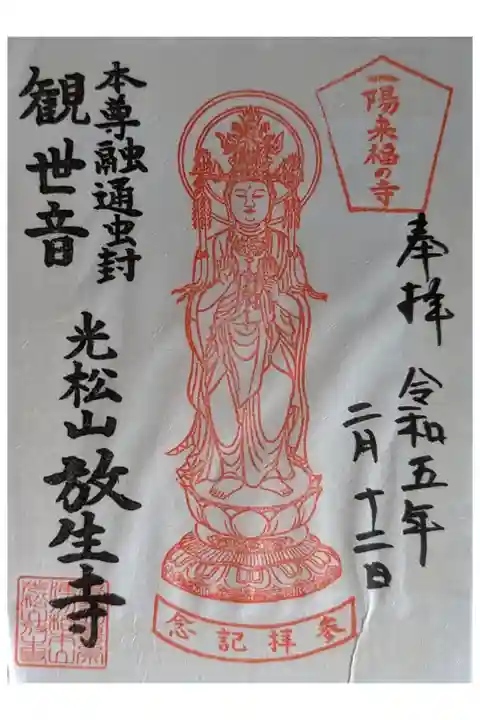 一陽来福の寺
奉拝
令和五年
二月十二日
参拝記念
本尊融通虫封
観世音
光松山
放生寺